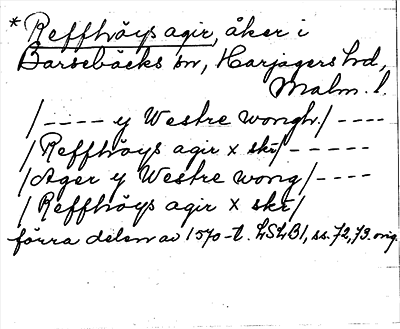 * Reffhöys agir, åker i
Barsebäcks sn, Harjagers hd,
Malm. l.
/---- y Westre wongh/----
/Reffhöys agir x skr/-----
/Ager y Westre wong/----
/Reffhöys agir x skr/
förra delen av 1570-t. LSLB1, ss. 72, 73. orig.